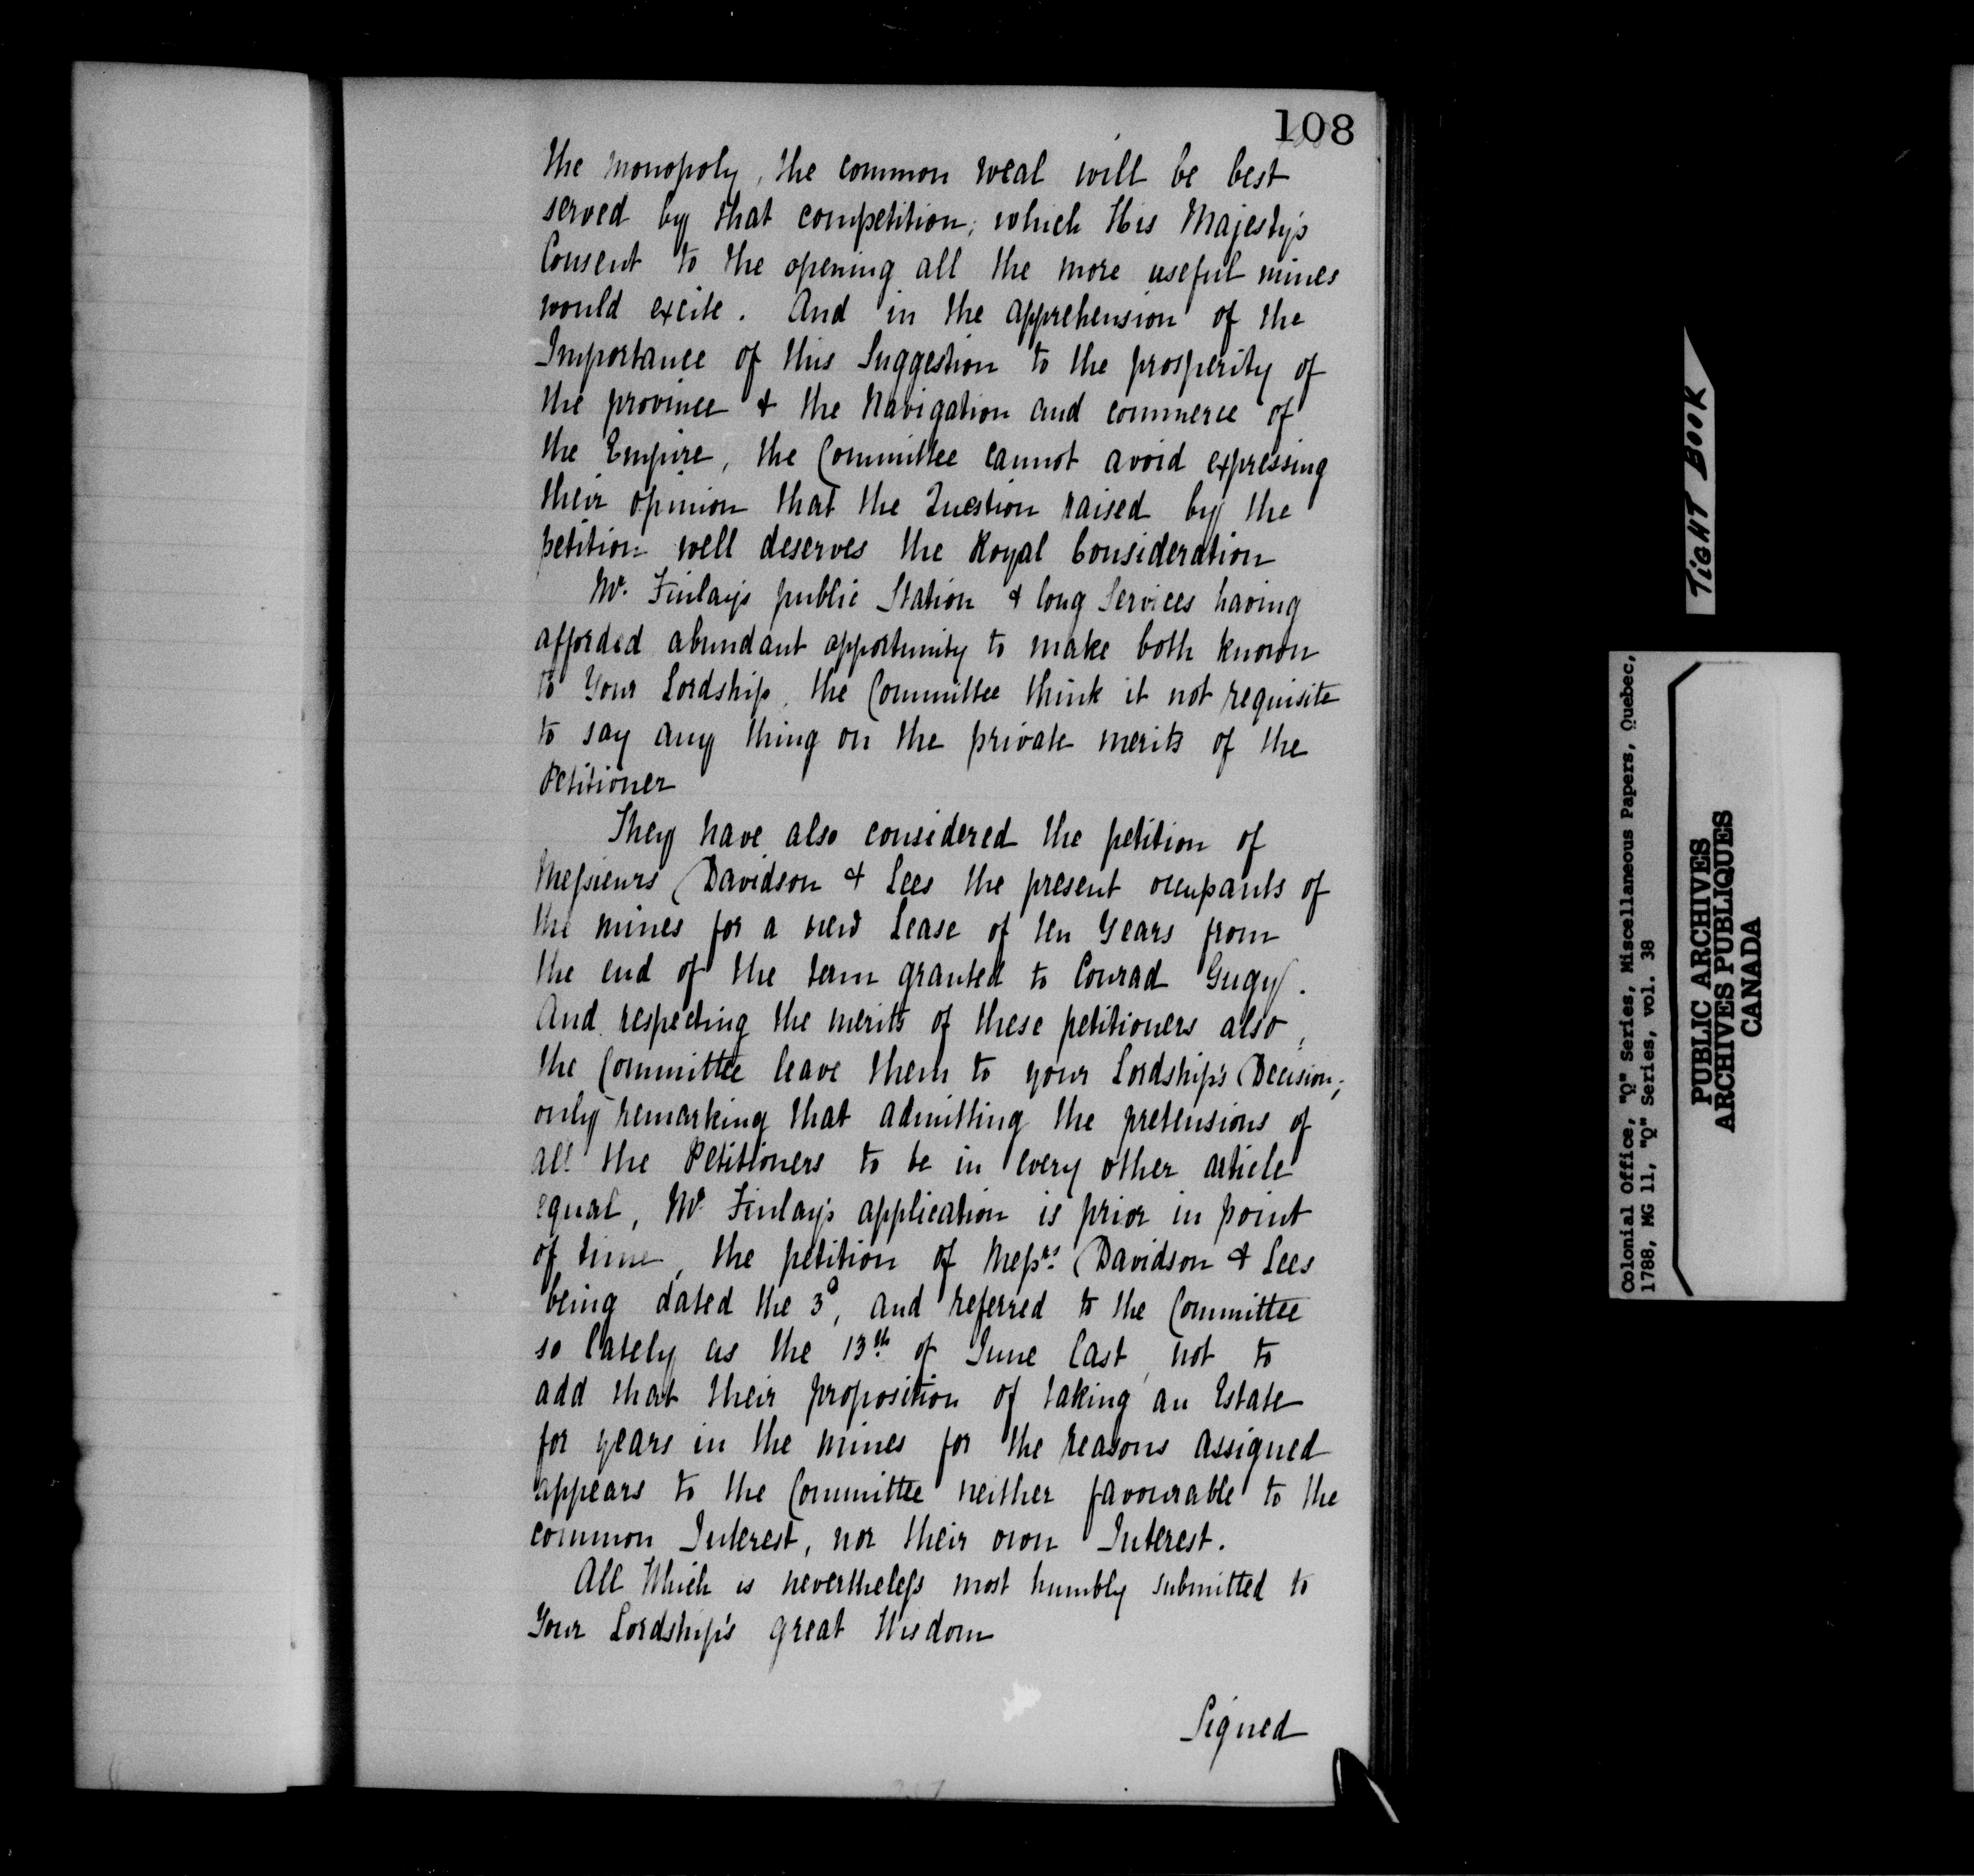 108
the monopoly, the common weal will be best
served by that competition; which His Majesty's
Consent to the opening all the more useful mines
would excite. And in the apprehension of the
Importance of this Suggestion to the prosperity of
the province & the Navigation and commerce of
the Empire, the Committee cannot avoid expressing
their opinion that the Question raised by the
petition well deserves the Royal Consideration
Mr. Finlay's public Station & long Services having
afforded abundant opportunity to make both known
to Your Lordship, the Committee think it not requisite
to say any thing on the private merits of the
Petitioner
They have also considered the petition of
Messieurs Davidson & Lees the present occupants of
the mines for a new Lease of ten Years from
the end of the term granted to Conrad Gugy.
And respecting the merits of these petitioners also,
the Committee leave them to your Lordship's Decision;
only remarking that admitting the pretensions of
all the Petitioners to be in every other article
equal, Mr Finlay's application is prior in point
of time, the petition of Messrs. Davidson & Lees
being dated the 3d, and referred to the Committee
so lately as the 13th of June last, not to
add that their proposition of taking an Estate
for years in the mines for the reasons assigned
appears to the Committee neither favourable to the
common Interest, nor their own Interest.
All Which is nevertheless most humbly submitted to
Your Lordship's great Wisdom
Signed
TIGHT BOOK
Colonial Office, "Q" Series, Miscellaneous Papers, Quebec,
1788, MG 11, "Q" Series, vol. 38
PUBLIC ARCHIVES
ARCHIVES PUBLIQUES
CANADA